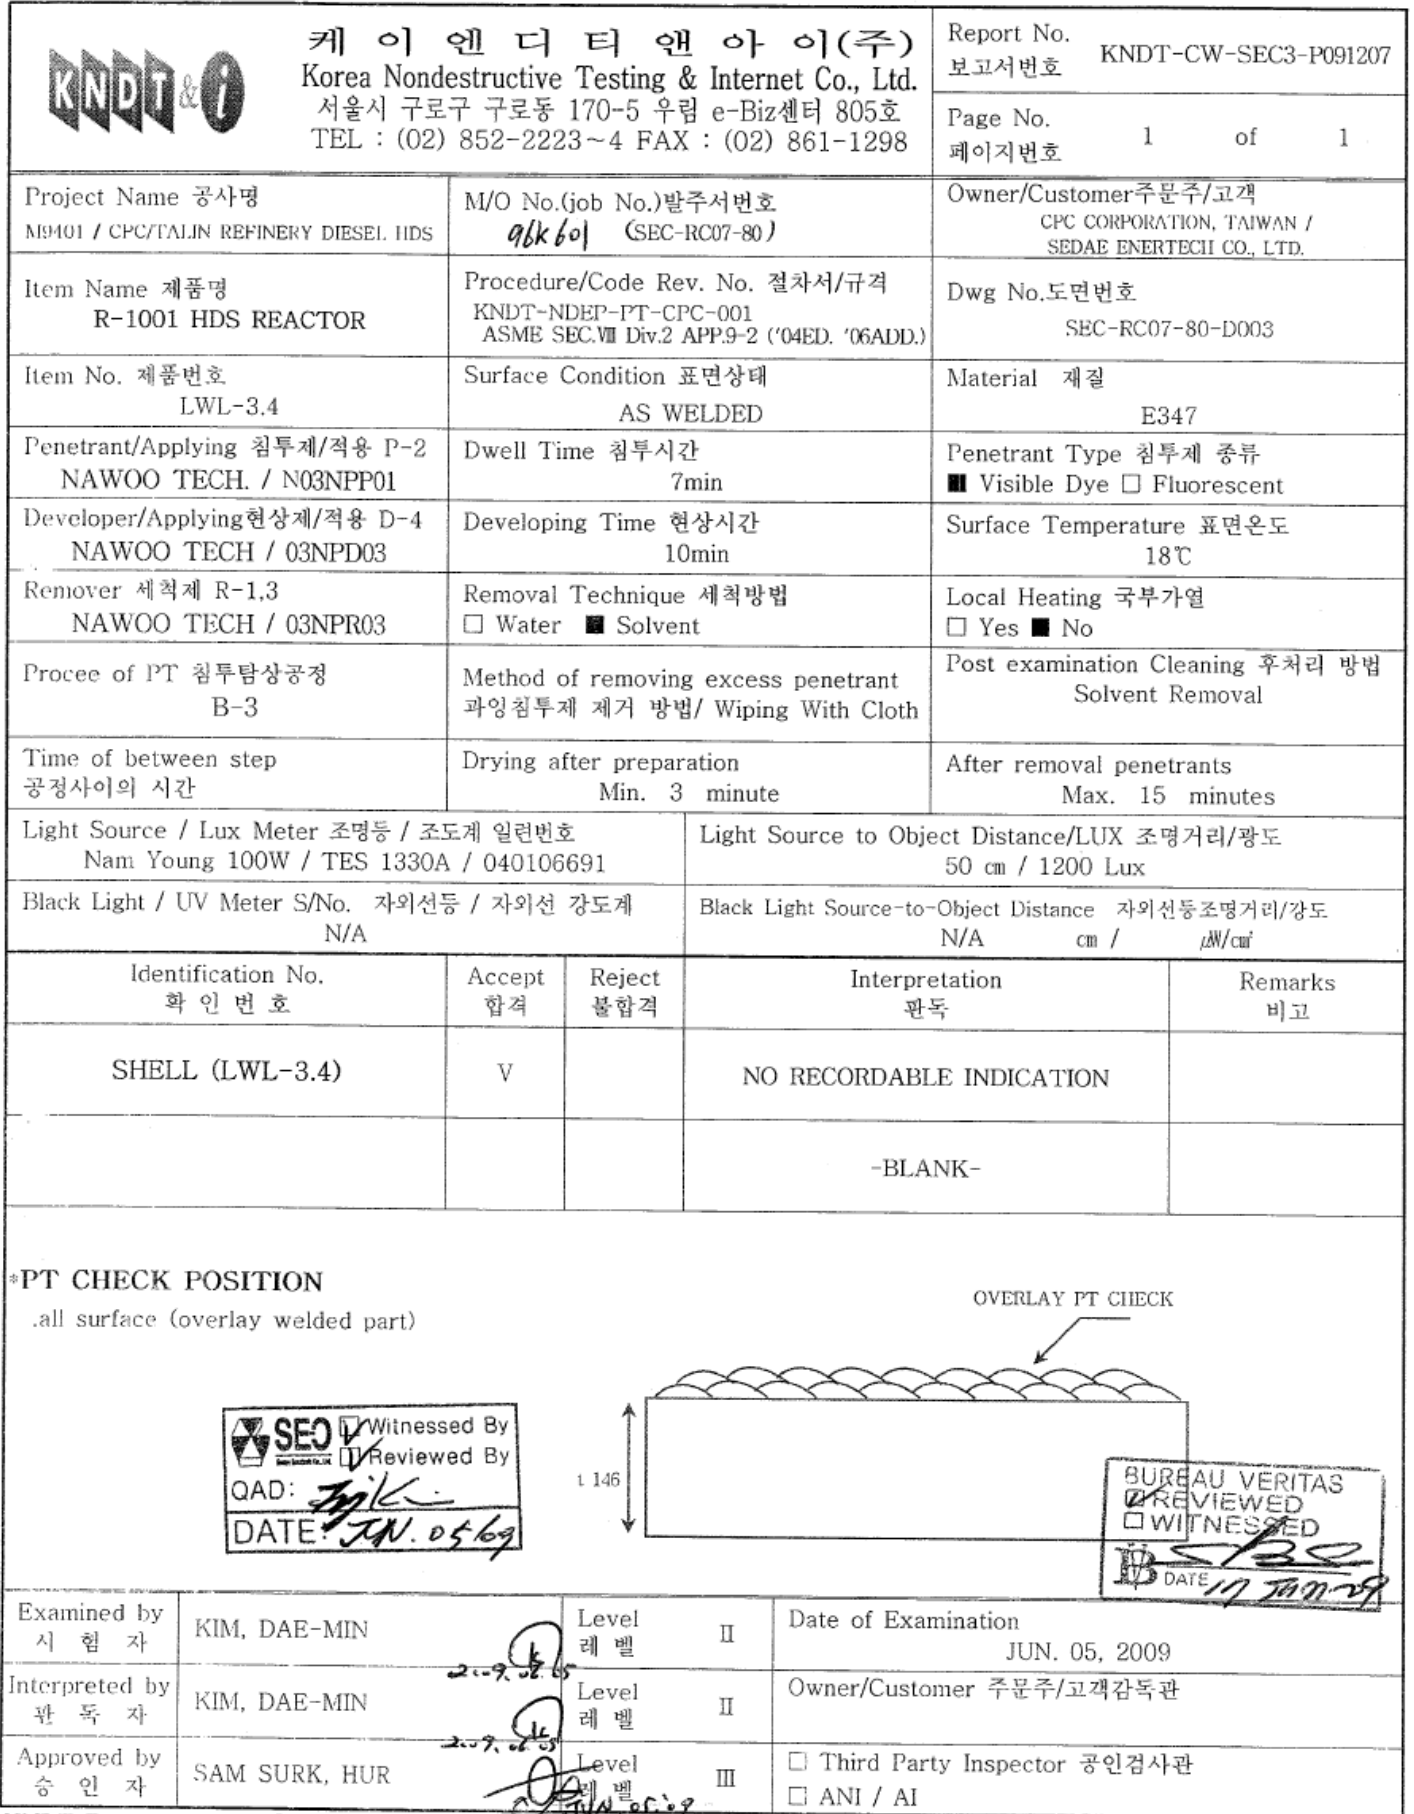 KNDT&i
케이엔디티앤아이(주)
Korea Nondestructive Testing & Internet Co., Ltd.
서울시 구로구 구로동 170-5 우림 e-Biz센터 805호
TEL : (02) 852-2223~4 FAX : (02) 861-1298
Report No.
보고서번호
KNDT-CW-SEC3-P091207
Page No.
페이지번호
1 of 1
Project Name 공사명
M9401 / CPC/TALIN REFINERY DIESEL HDS
M/O No.(job No.)발주서번호
96K601 (SEC-RC07-80)
Owner/Customer주문주/고객
CPC CORPORATION, TAIWAN /
SEDAE ENERTECH CO., LTD.
Item Name 제품명
R-1001 HDS REACTOR
Procedure/Code Rev. No. 절차서/규격
KNDT-NDEP-PT-CPC-001
ASME SEC.Ⅷ Div.2 APP.9-2 ('04ED. '06ADD.)
Dwg No.도면번호
SEC-RC07-80-D003
Item No. 제품번호
LWL-3.4
Surface Condition 표면상태
AS WELDED
Material 재질
E347
Penetrant/Applying 침투제/적용 P-2
NAWOO TECH. / N03NPP01
Dwell Time 침투시간
7min
Penetrant Type 침투제 종류
■ Visible Dye □ Fluorescent
Developer/Applying현상제/적용 D-4
NAWOO TECH / 03NPD03
Developing Time 현상시간
10min
Surface Temperature 표면온도
18℃
Remover 세척제 R-1,3
NAWOO TECH / 03NPR03
Removal Technique 세척방법
□ Water ■ Solvent
Local Heating 국부가열
□ Yes ■ No
Procee of PT 침투탐상공정
B-3
Method of removing excess penetrant
과잉침투제 제거 방법/ Wiping With Cloth
Post examination Cleaning 후처리 방법
Solvent Removal
Time of between step
공정사이의 시간
Drying after preparation
Min. 3 minute
After removal penetrants
Max. 15 minutes
Light Source / Lux Meter 조명등 / 조도계 일련번호
Nam Young 100W / TES 1330A / 040106691
Light Source to Object Distance/LUX 조명거리/광도
50 ㎝ / 1200 Lux
Black Light / UV Meter S/No. 자외선등 / 자외선 강도계
N/A
Black Light Source-to-Object Distance 자외선등조명거리/강도
N/A ㎝ / ㎼/㎠
Identification No.
확 인 번 호
Accept
합격
Reject
불합격
Interpretation
판독
Remarks
비고
SHELL (LWL-3.4)
V
NO RECORDABLE INDICATION
-BLANK-
*PT CHECK POSITION
.all surface (overlay welded part)
OVERLAY PT CHECK
t 146
SEC Witnessed By
Reviewed By
QAD:
DATE: JUN. 05/09
BUREAU VERITAS
REVIEWED
□ WITNESSED
DATE 17 JUN 09
Examined by
시 험 자
KIM, DAE-MIN
2009.06.05
Level
레 벨
Ⅱ
Date of Examination
JUN. 05, 2009
Interpreted by
판 독 자
KIM, DAE-MIN
2009.06.05
Level
레 벨
Ⅱ
Owner/Customer 주문주/고객감독관
Approved by
승 인 자
SAM SURK, HUR
JUN 05.'09
Level
레 벨
Ⅲ
□ Third Party Inspector 공인검사관
□ ANI / AI